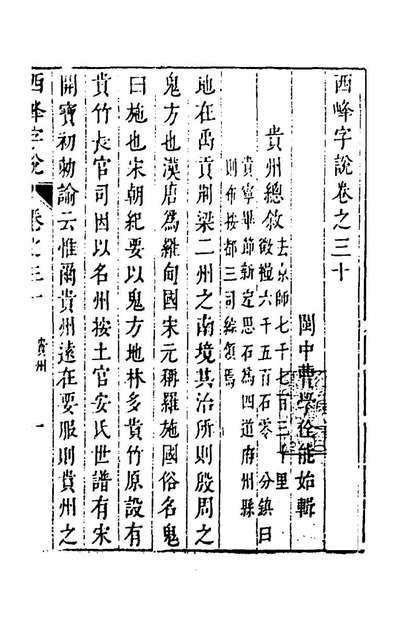 西峰字說卷之三十
閩中曹學佺能始輯
貴州總敘
去京師七千七百三十里
徵糧六千五百石零 分鎮曰
貴寧畢節新定思石為四道府州縣
則布按都三司綜領焉
地在禹貢荆梁二州之南境其治所則殷周之
鬼方也漢唐為羅甸國宋元稱羅施國俗名鬼
曰施也宋朝紀要以鬼方地林多貴竹原設有
貴竹長官司因以名州按土官安氏世譜有宋
開寶初勅諭云惟爾貴州遠在要服則貴州之
西峰字說 卷之三十 貴州 一